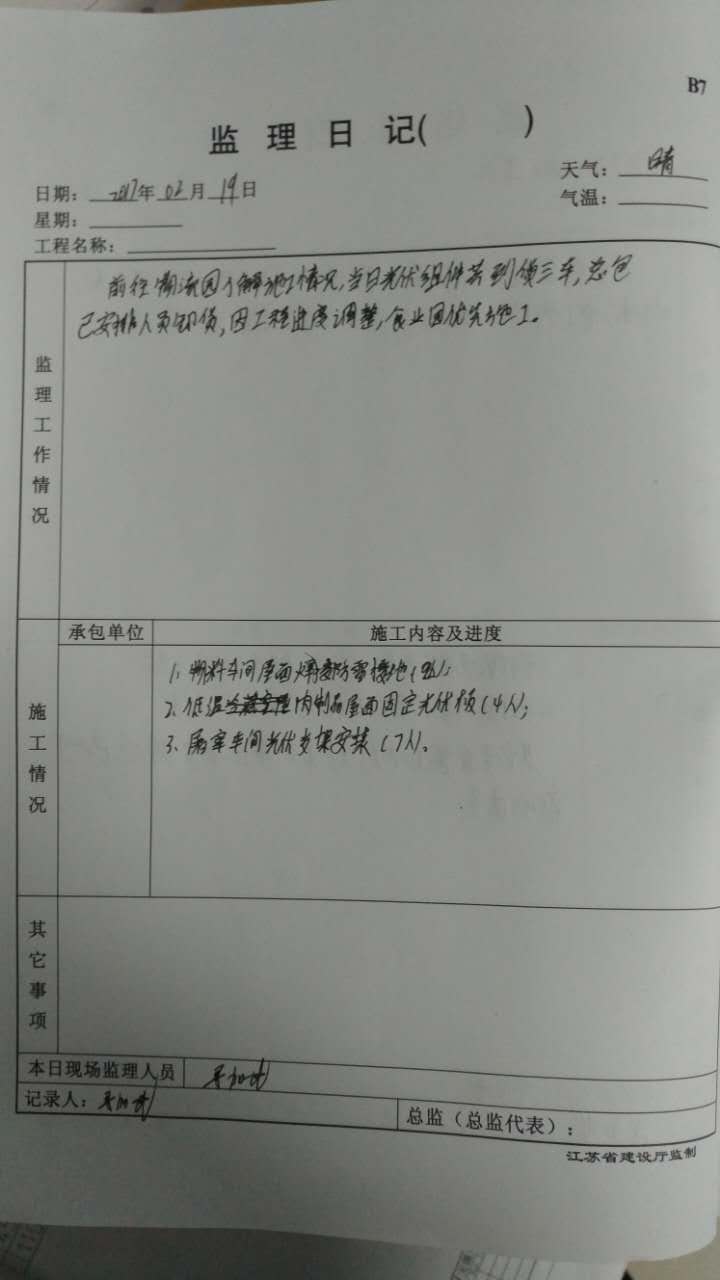 B7
监 理 日 记( )
日期: 2017年 02月 19日
天气: 晴
星期:
气温:
工程名称:
监理工作情况
前往物流园了解施工情况,当日光伏组件共到货三车,总包
已安排人员卸货,因工程进度调整,食业园优先施工。
承包单位 施工内容及进度
施工情况
1、塑料车间屋面防雷接地
2、低温肉制品屋面固定光伏板(4人);
3、屠宰车间光伏支架安装(7人)。
其它事项
本日现场监理人员
记录人:
总监(总监代表):
江苏省建设厅监制